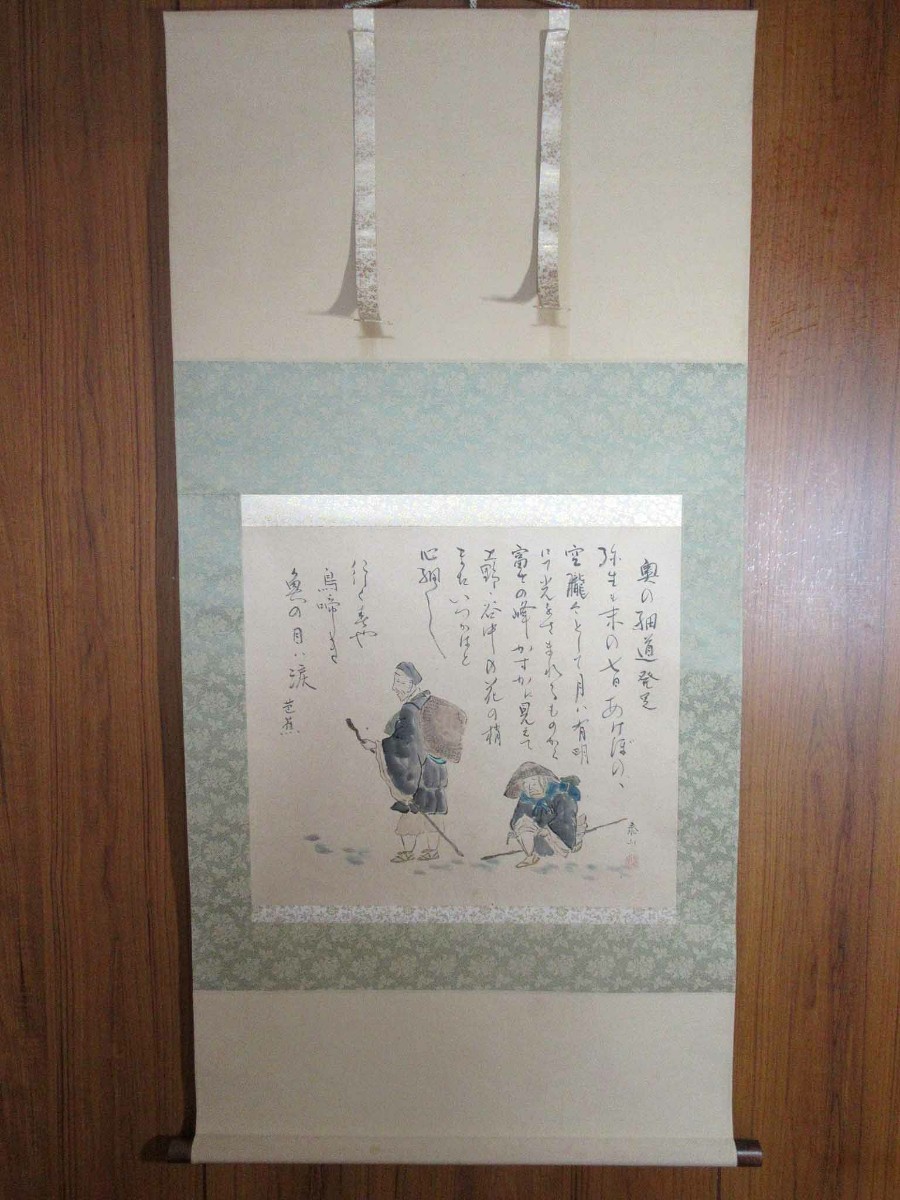 奥の細道発足
弥生も末の七日あけぼの、
空朧々として月は有明
にて光をさまれるものから
富士の峰かすかに見えて
上野・谷中の花の梢
またいつかはと
心細し
行く春や
鳥啼き
魚の目は涙 芭蕉
泰山